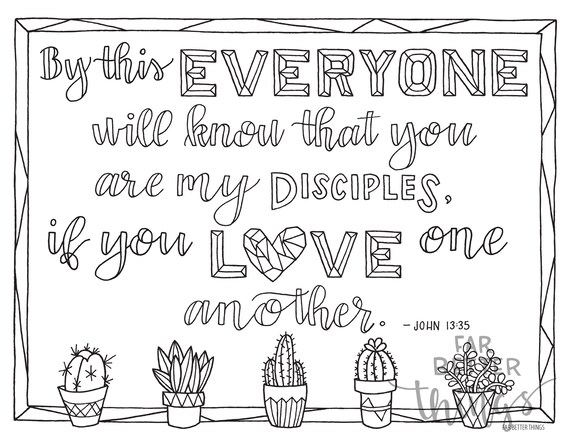 By this EVERYONE
will know that you
are my DISCIPLES,
if you LOVE one
another.
- JOHN 13:35
FAR
BETTER
things
FAR BETTER THINGS